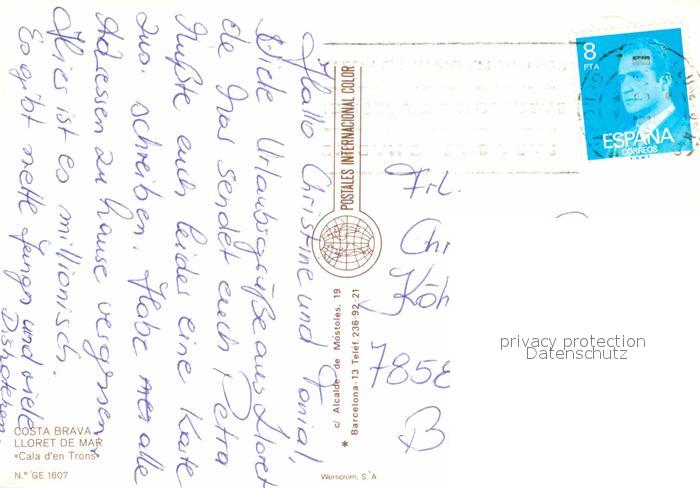 Hallo Christine und Tonia!
Viele Urlaubsgrüße aus Lloret
de Mar sendet euch Petra
Mußte euch leider eine Karte
zus. schreiben. Habe mer alle
Adressen zu hause vergessen.
Hies ist es millionisch.
Es gibt nette Jungs und viele
Diskoteken.
COSTA BRAVA
LLORET DE MAR
«Cala d'en Trons»
N.º GE 1607
POSTALES INTERNACIONAL COLOR
c/ Alcalde de Móstoles, 19
* Barcelona-13 Teléf. 236-92-21
Wernicrom, S. A
8
PTA
ESPAÑA
CORREOS
Frl.
Chr
Köh
7858
privacy protection
Datenschutz